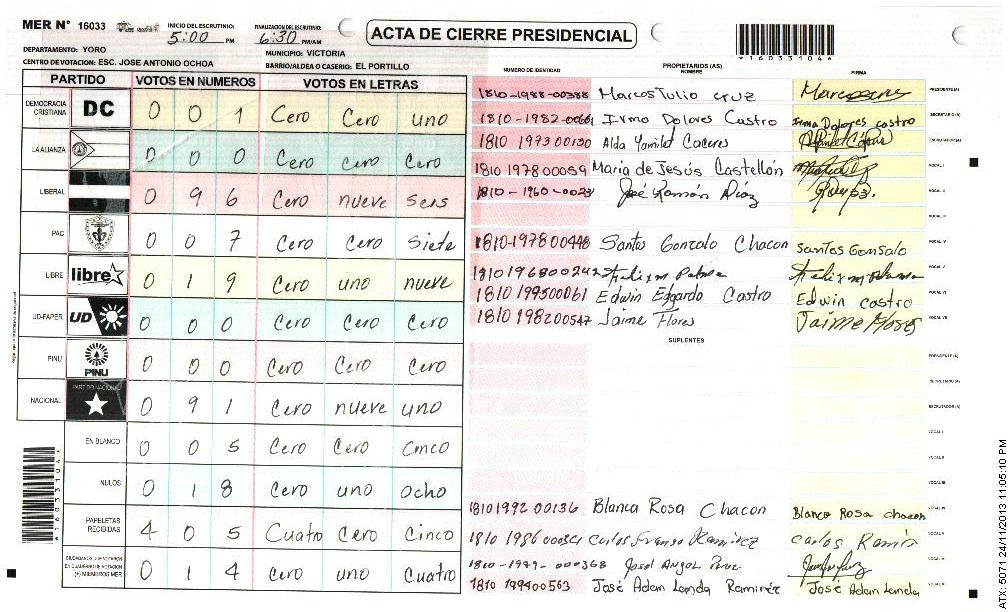 MER Nº 16033
INICIO DEL ESCRUTINIO: 5:00 PM
FINALIZACION DEL ESCRUTINIO: 6:30 PM/AM
ACTA DE CIERRE PRESIDENCIAL
*16033104*
DEPARTAMENTO: YORO
MUNICIPIO: VICTORIA
CENTRO DE VOTACION: ESC. JOSE ANTONIO OCHOA
BARRIO/ALDEA O CASERIO: EL PORTILLO
PARTIDO VOTOS EN NUMEROS VOTOS EN LETRAS
DEMOCRACIA CRISTIANA DC 0 0 1 Cero Cero uno
LA ALIANZA 0 0 0 Cero Cero Cero
LIBERAL 0 9 6 Cero nueve seis
PAC 0 0 7 Cero Cero Siete
LIBRE libre 0 1 9 Cero uno nueve
UD-FAPER UD 0 0 0 Cero Cero Cero
PINU PINU 0 0 0 Cero Cero Cero
NACIONAL PARTIDO NACIONAL 0 9 1 Cero nueve uno
EN BLANCO 0 0 5 Cero Cero Cinco
NULOS 0 1 8 Cero uno ocho
PAPELETAS RECIBIDAS 4 0 5 Cuatro Cero Cinco
CIUDADANOS QUE VOTARON EN CUADERNO DE VOTACION (+) MIEMBROS MER 0 1 4 Cero uno Cuatro
*16033104*
NUMERO DE IDENTIDAD PROPIETARIOS (AS) NOMBRE FIRMA
1810-1988-00388 Marcos Tulio cruz PRESIDENTE (A)
1810-1982-0061 Irma Dolores Castro Irma Dolores castro SECRETARIO (A)
1810 1973 00130 Alda Yamilet Caceres ESCRUTADOR (A)
1810 1978 00059 Maria de Jesús Castellón VOCAL I
1810-1960-0023 José Ramón Díaz VOCAL II
VOCAL III
1810-1978 00448 Santos Gonzalo Chacon santos Gonsalo VOCAL IV
1810 1968 00242 VOCAL V
1810 1995 00061 Edwin Edgardo Castro Edwin castro VOCAL VI
1810 1982 00547 Jaime Flores Jaime Flores VOCAL VII
SUPLENTES
PRESIDENTE (A)
SECRETARIO (A)
ESCRUTADOR (A)
VOCAL I
VOCAL II
VOCAL III
1810 1992 00136 Blanca Rosa Chacon Blanca Rosa chacon VOCAL IV
1810 1986 00361 Carlos Ramirez Carlos Ramirez VOCAL V
1810-1977-000368 José Angel
1810 1994 00563 José Adan Landa Ramirez José Adan Landa
ATX 5071 24/11/2013 11:05:10 PM